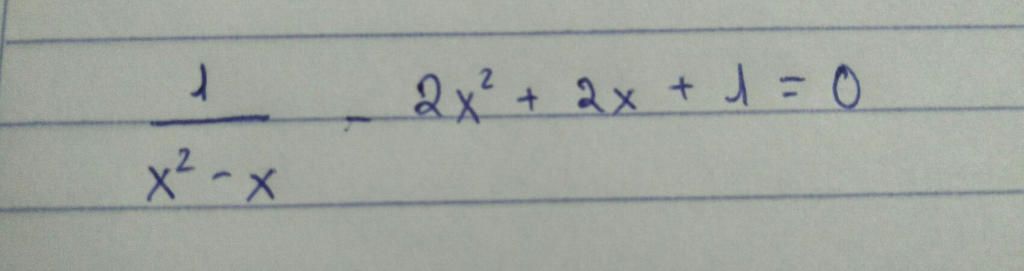 1/(x² - x) - 2x² + 2x + 1 = 0